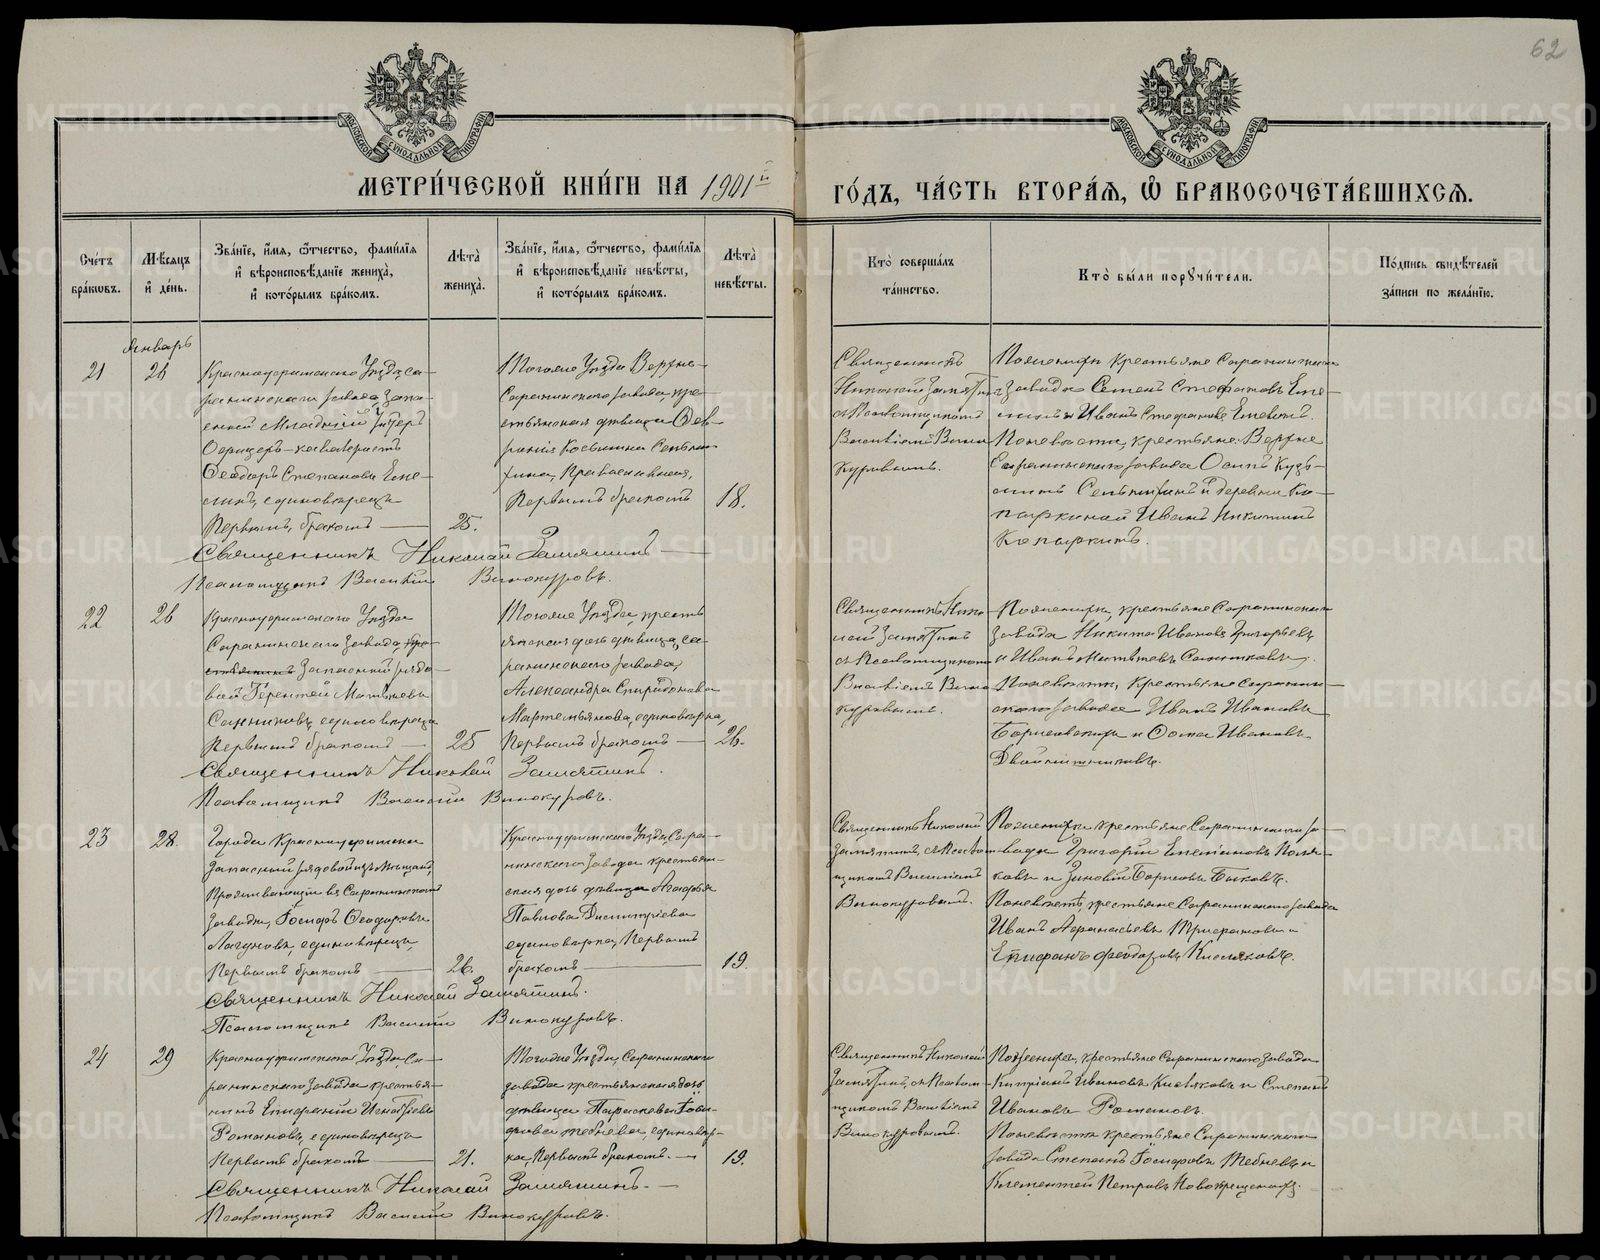 62
МОСКОВСКОЙ СУНОДАЛЬНОЙ ТИПОГРАФІИ
МОСКОВСКОЙ СУНОДАЛЬНОЙ ТИПОГРАФІИ
МЕТРИ́ЧЕСКОЙ КНИ́ГИ НА 1901й
ГО́ДЪ, ЧА́СТЬ ВТОРА́Ѧ, Ѽ БРАКОСОЧЕТА́ВШИХСѦ.
Сче́тъ бра́кѡвъ.
Мѣ́сяцъ и҆ де́нь.
Зва́нїе, и҆́мѧ, ѻ҆́тчество, фами́лїѧ
и҆ вѣроисповѣ́данїе жениха̀,
и҆ кото́рымъ бра́комъ.
Лѣта̀ жениха̀.
Зва́нїе, и҆́мѧ, ѻ҆́тчество, фами́лїѧ
и҆ вѣроисповѣ́данїе невѣ́сты,
и҆ кото́рымъ бра́комъ.
Лѣта̀ невѣ́сты.
Кто̀ соверша́лъ
та́инство.
Кто̀ бы́ли порꙋчи́тели.
По́дпись свидѣ́телей
за́писи по жела́нїю.
Январь
21
26
Красноуфимскаго Уѣзда, Са-
ранинскаго завода, запа-
сный Младшій Унтеръ
Офицеръ-кавалеристъ
Ѳеодоръ Степановъ
единовѣрецъ
Первымъ бракомъ
25.
Тогоже Уѣзда Верхне-
Саранинскаго завода, кре-
стьянская дѣвица
Косьмина
Православная,
Первымъ бракомъ
18.
Священникъ
Николай Замятинъ
съ Псаломщикомъ
Василіемъ Вино-
куровымъ.
По женихѣ крестьяне Саранинскаго
завода Семенъ Стефановъ
и Иванъ Стефановъ
По невѣстѣ, крестьяне Верхне
Саранинскаго завода Осипъ Кузь-
минъ и деревни
Иванъ Никитинъ
Священникъ Николай Замятинъ
Псаломщикъ Василій Винокуровъ.
22
26
Красноуфимскаго Уѣзда
Саранинскаго Завода, кре-
стьянинъ Запасный рядо-
вой Терентій Матвѣевъ
Санниковъ, единовѣрецъ
Первымъ бракомъ
25
Тогоже Уѣзда, кресть
янская дочь дѣвица, Са-
ранинскаго завода,
Александра Спиридонова
Мартемьянова, единовѣрка,
Первымъ бракомъ
26.
Священникъ Нико-
лай Замятинъ
съ Псаломщикомъ
Василіемъ Вино-
куровымъ.
По женихѣ, крестьяне Саранинскаго
завода Никита Ивановъ Григорьевъ
и Иванъ Матвѣевъ Санниковъ.
По невѣстѣ, крестьяне Саранин-
скаго завода Иванъ Ивановъ
и Ѳома Ивановъ
Двойнишниковъ.
Священникъ Николай Замятинъ.
Псаломщикъ Василій Винокуровъ.
23
28.
Города Красноуфимска
Запасный рядовой изъ мѣщанъ,
Проживающій въ Саранинскомъ
Заводѣ, Ѳеодоровъ
Лагуновъ, единовѣрецъ,
Первымъ бракомъ
26.
Красноуфимскаго Уѣзда, Сара-
нинскаго Завода крестьян-
ская дочь дѣвица Агафья
Павлова Димитріева
единовѣрка, Первымъ
бракомъ
19.
Священникъ Николай
Замятинъ, съ Псалом-
щикомъ Василіемъ
Винокуровымъ.
По женихѣ крестьяне Саранинскаго за-
вода, Григорій
и Зиновій Борисовъ Быковъ.
По невѣстѣ, крестьяне Саранинскаго завода
Иванъ Аѳанасьевъ Трифановъ и
Епифанъ Феодоровъ Кисляковъ.
Священникъ Николай Замятинъ.
Псаломщикъ Василій Винокуровъ.
24
29
Красноуфимскаго Уѣзда, Са-
ранинскаго Завода крестья-
нинъ Игнатіевъ
Романовъ, единовѣрецъ
Первымъ бракомъ
21.
Тогоже Уѣзда, Саранинскаго
завода крестьянская дочь
дѣвица Параскева
единовѣр-
ка, Первымъ бракомъ.
19.
Священникъ Николай
Замятинъ, съ Псалом-
щикомъ Василіемъ
Винокуровымъ.
По женихѣ, крестьяне Саранинскаго Завода
Кипріанъ Ивановъ Кисляковъ и Степанъ
Ивановъ Романовъ.
По невѣстѣ крестьяне Саранинскаго
завода Степанъ и
Климентій Петровъ Новокрещеновъ.
Священникъ Николай Замятинъ.
Псаломщикъ Василій Винокуровъ.
METRIKI.GASO-URAL.RU